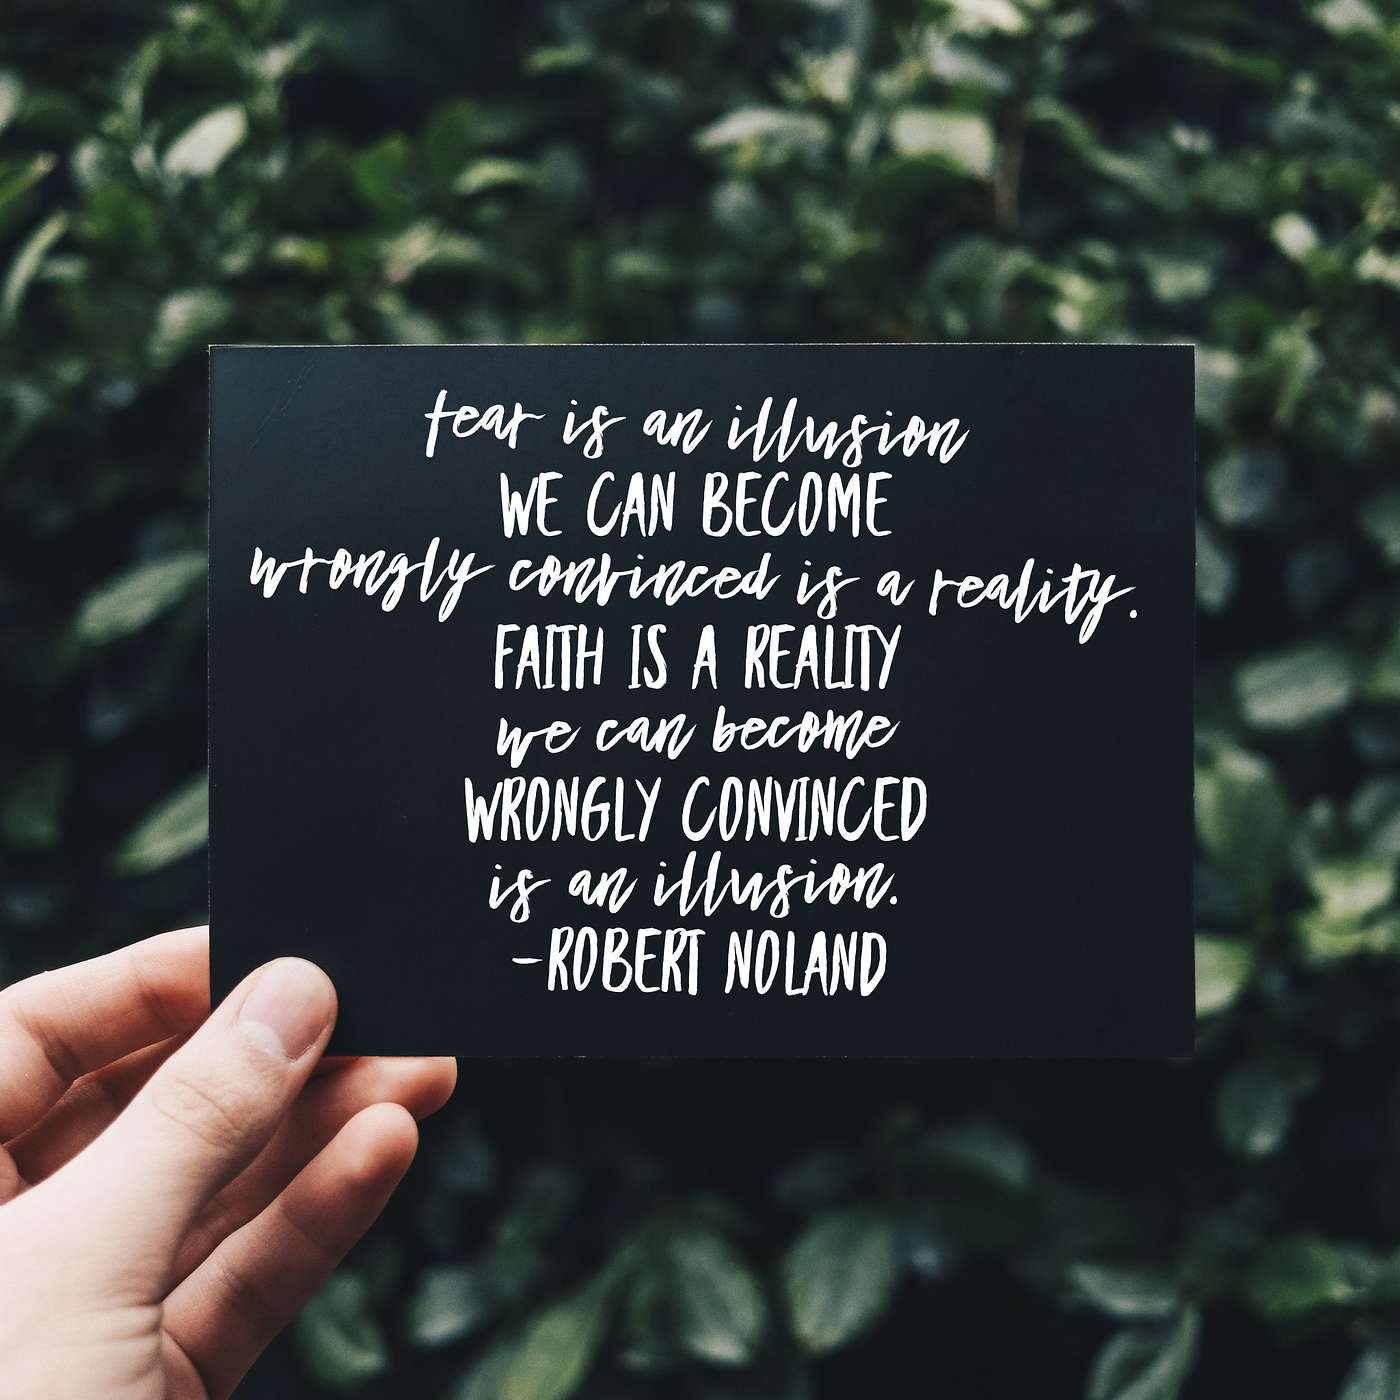 fear is an illusion
WE CAN BECOME
wrongly convinced is a reality.
FAITH IS A REALITY
we can become
WRONGLY CONVINCED
is an illusion.
-ROBERT NOLAND